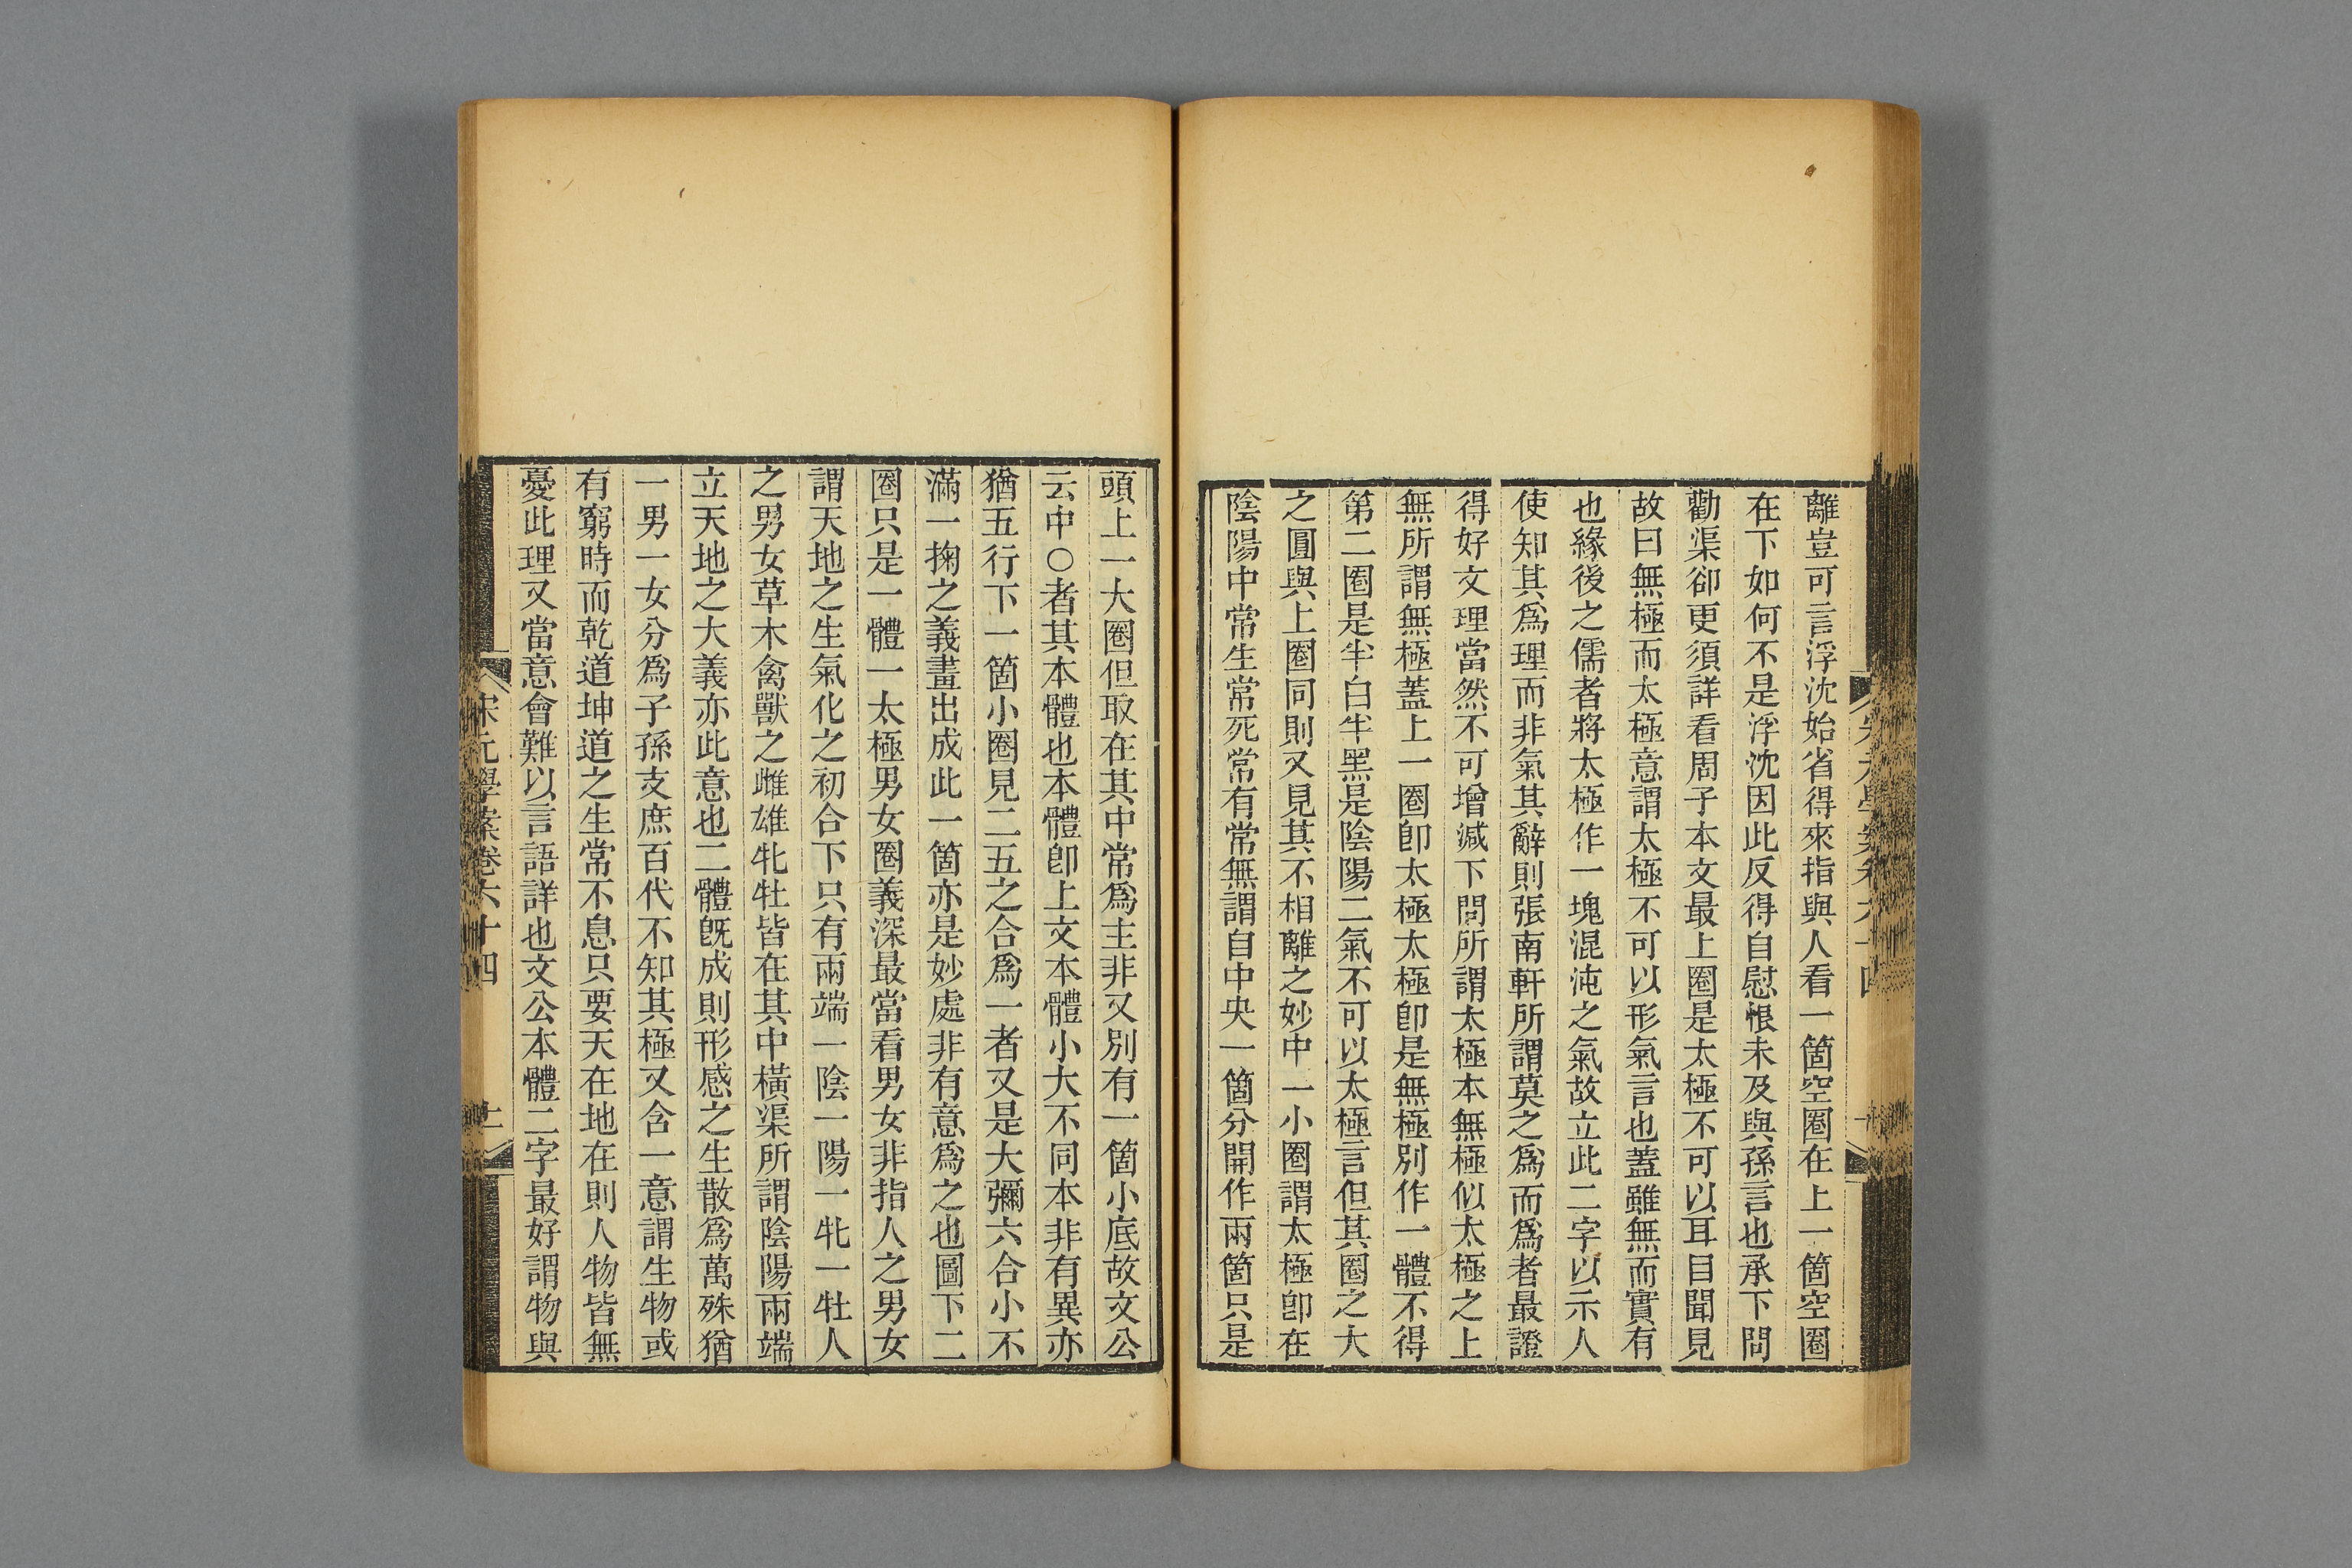 離豈可言浮沈始省得來指與人看一箇空圈在上一箇空圈
在下如何不是浮沈因此反得自慰恨未及與孫言也承下問
勸渠卻更須詳看周子本文最上圈是太極不可以耳目聞見
故曰無極而太極意謂太極不可以形氣言也蓋雖無而實有
也緣後之儒者將太極作一塊混沌之氣故立此二字以示人
使知其爲理而非氣其辭則張南軒所謂莫之爲而爲者最證
得好文理當然不可增減下問所謂太極本無極似太極之上
無所謂無極蓋上一圈卽太極太極卽是無極別作一體不得
第二圈是半白半黑是陰陽二氣不可以太極言但其圈之大
之圓與上圈同則又見其不相離之妙中一小圈謂太極卽在
陰陽中常生常死常有常無謂自中央一箇分開作兩箇只是
頭上一大圈但取在其中常爲主非又別有一箇小底故文公
云中○者其本體也本體卽上文本體小大不同本非有異亦
猶五行下一箇小圈見二五之合爲一者又是大彌六合小不
滿一掬之義畫出成此一箇亦是妙處非有意爲之也圖下二
圈只是一體一太極男女圈義深最當看男女非指人之男女
謂天地之生氣化之初合下只有兩端一陰一陽一牝一牡人
之男女草木禽獸之雌雄牝牡皆在其中橫渠所謂陰陽兩端
立天地之大義亦此意也二體旣成則形感之生散爲萬殊猶
一男一女分爲子孫支庶百代不知其極又含一意謂生物或
有窮時而乾道坤道之生常不息只要天在地在則人物皆無
憂此理又當意會難以言語詳也文公本體二字最好謂物與
宋元學案卷六十四